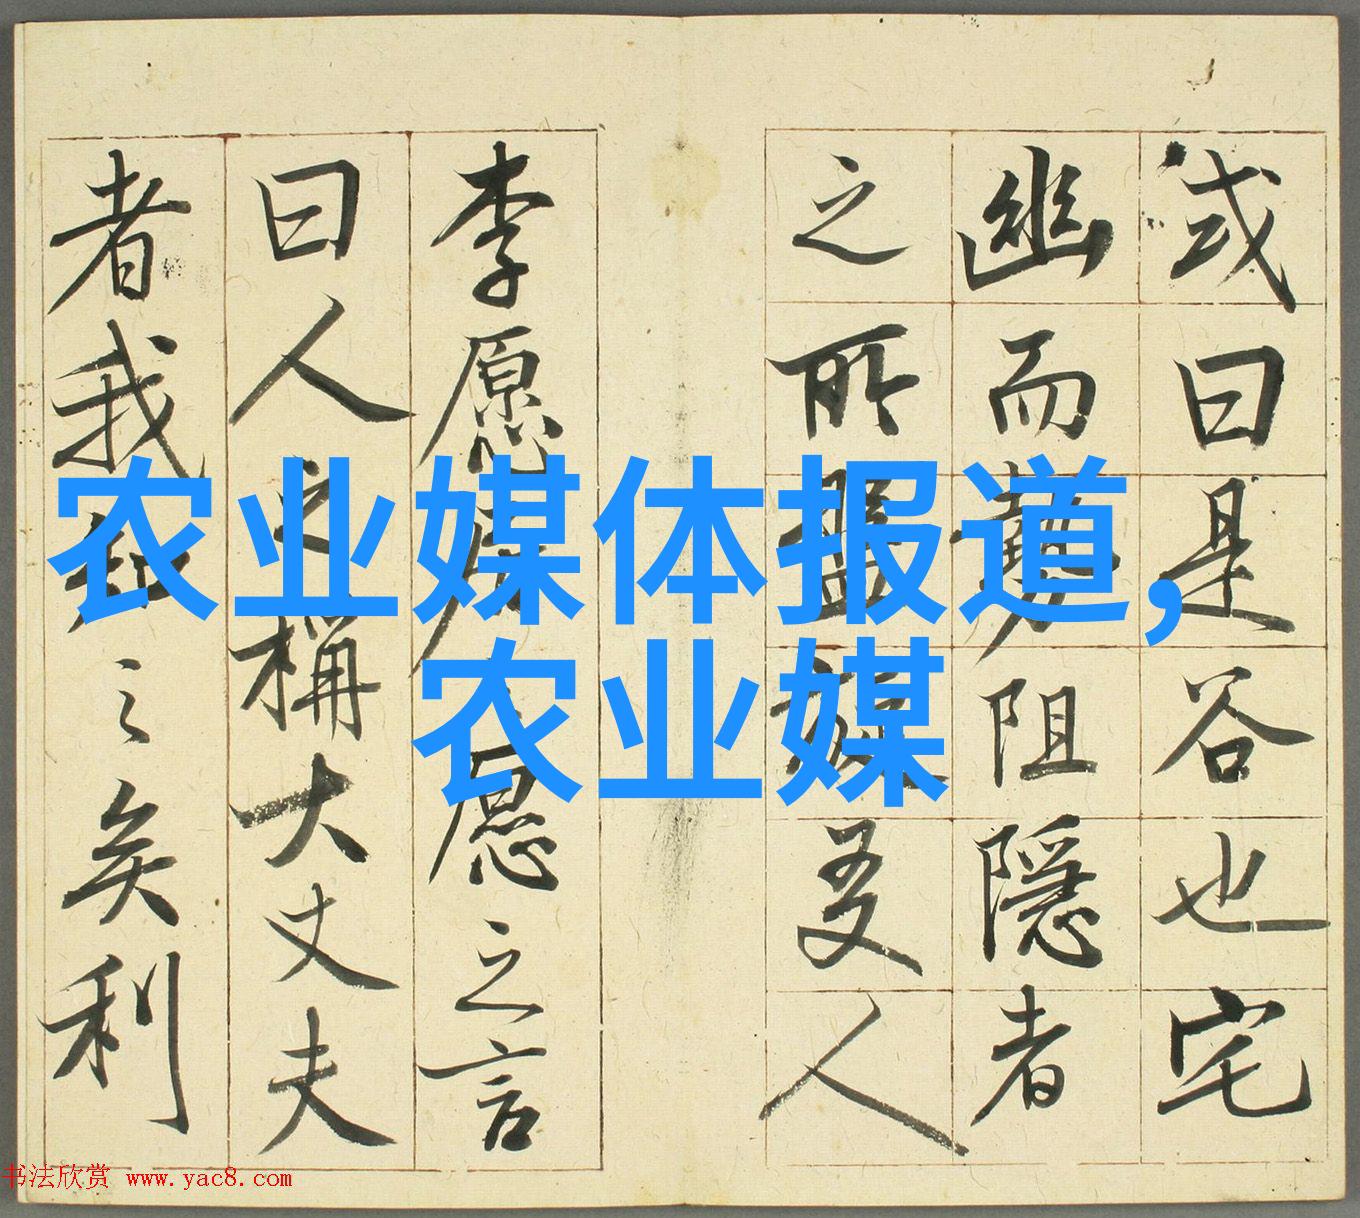 或曰是谷也宅
幽而勢阻隱者
之所盤旋友人
李愿居之愿之言
曰人之稱大丈夫
者我知之矣利
农业媒体报道,
农业媒
书法欣赏 www.yac8.com